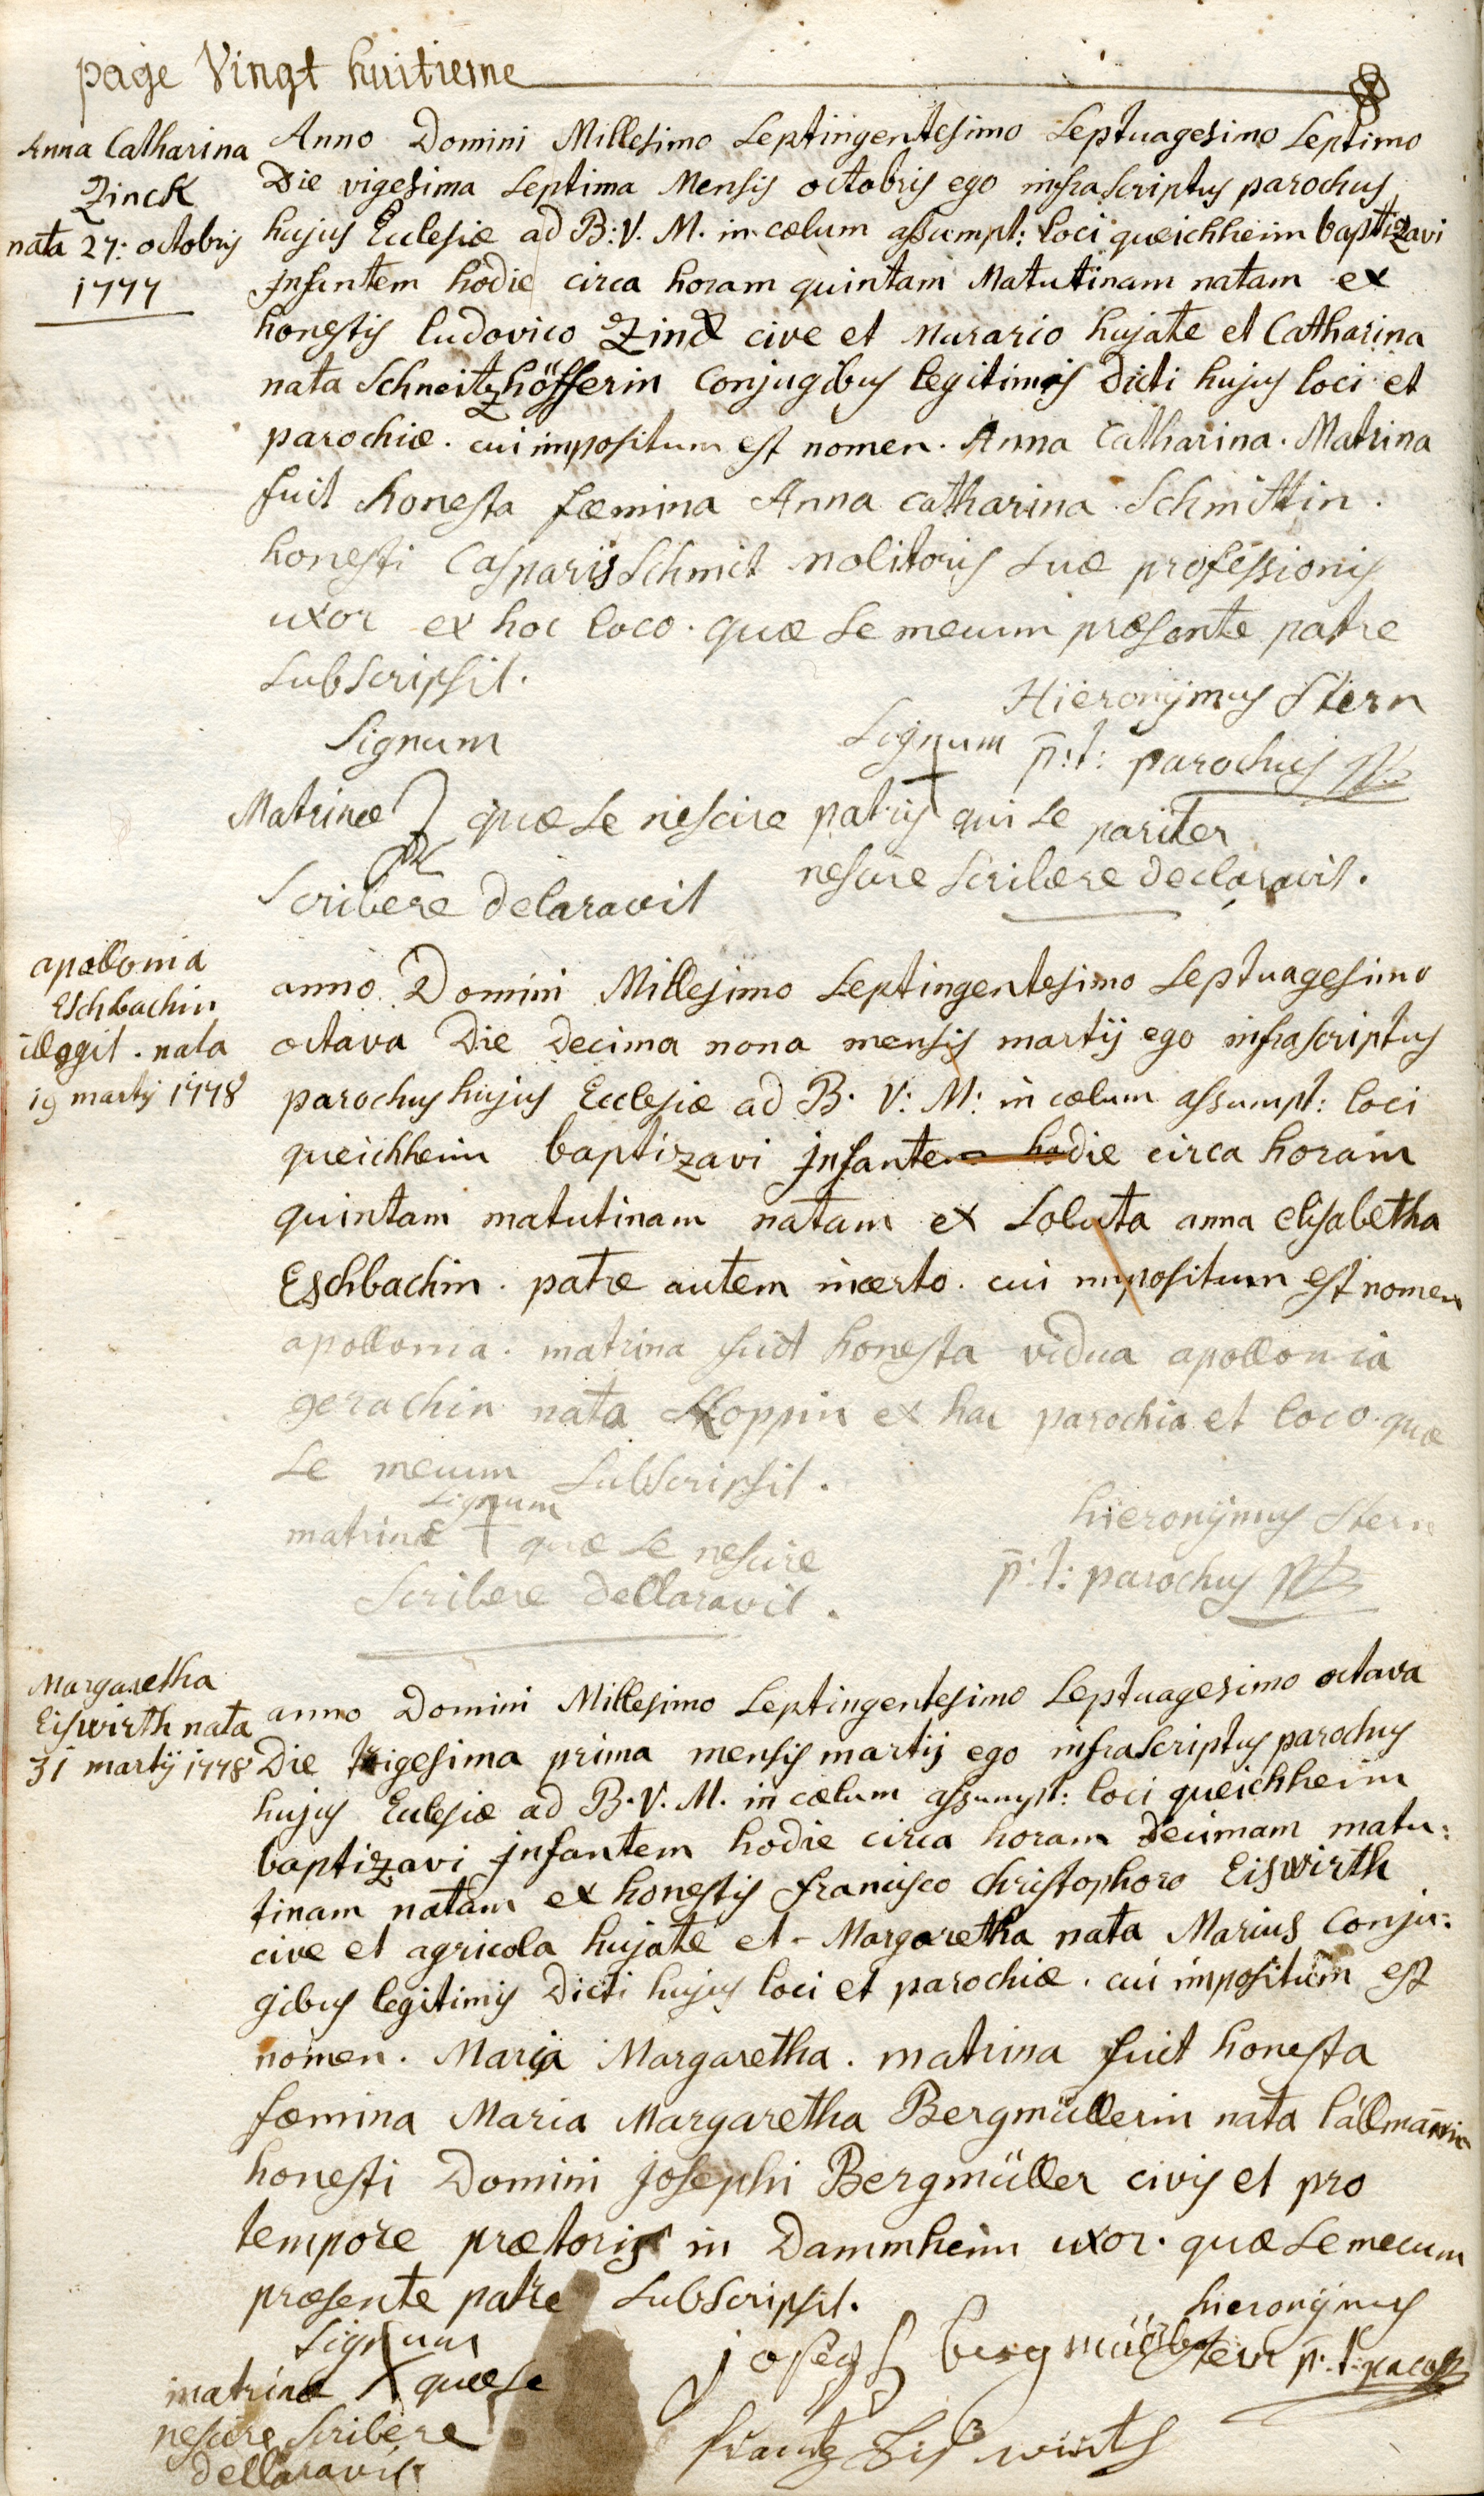 page Vingt huitieme
Anna Catharina
Zinck
nata 27: octobris
1777
Anno Domini Millesimo Septingentesimo Septuagesimo Septimo
Die vigesima Septima Mensis octobris ego infrascriptus parochus
hujus Ecclesiæ ad B: V. M. in cælum assumpt: loci queichheim baptizavi
jnfantem hodie circa horam quintam Matutinam natam ex
honestis ludovico Zinck cive et Murario hujate et Catharina
nata Schneitzhöfferin Conjugibus legitimis dicti hujus loci et
parochiæ. cui impositum est nomen. Anna Catharina. Matrina
fuit honesta fæmina Anna Catharina Schmittin.
honesti Casparis Schmit molitoris suæ professionis
uxor ex hoc loco. quæ se mecum præsente patre
subscripsit.
Hieronÿmus Stern
p̄: t: parochus
Signum
Matrinæ quæ se nescire
Scribere delaravit
Signum
patris qui se pariter
nescire scribere declaravit.
apollonia
Eschbachin
illegit. nata
19 martij 1778
anno Domini Millesimo Septingentesimo Septuagesimo
octava Die Decima nona mensis martij ego infrascriptus
parochus hujus Ecclesiæ ad B. V: M: in cælum assumpt: loci
queichheim baptizavi jnfantem hodie circa horam
quintam matutinam natam ex soluta anna elisabetha
Eschbachin. patre autem incerto. cui impositum est nomen
apollonia. matrina fuit honesta vidua apollonia
gerachin nata Kloppin ex hac parochia et loco. quæ
se mecum subscripsit.
Signum
matrinæ quæ se nescire
Scribere dellaravit.
hieronÿmus Stern
p̄: t: parochus
Margaretha
Eiswirth nata
31 martij 1778
anno Domini Millesimo Septingentesimo Septuagesimo octava
Die trigesima prima mensis martij ego infrascriptus parochus
hujus Ecclesiæ ad B. V. M. in cælum assumpt: loci queichheim
baptizavi jnfantem hodie circa horam decimam matu:
tinam natam ex honestis francisco christophoro Eiswirth
cive et agricola hujate et Margaretha nata Marius Conju:
gibus legitimis Dicti hujus loci et parochiæ. cui impositum est
nomen. Maria Margaretha. matrina fuit honesta
fæmina Maria Margaretha Bergmüllerin nata
honesti Domini josephi Bergmüller civis et pro
tempore prætoris in Dammheim uxor. quæ se mecum
præsente patre subscripsit.
hieronÿmus
Stern p̄. t: paroch
Signum
matrinæ quæ se
nescire scribere
dellaravit
joseph bergmüller
frantz Eisswirth